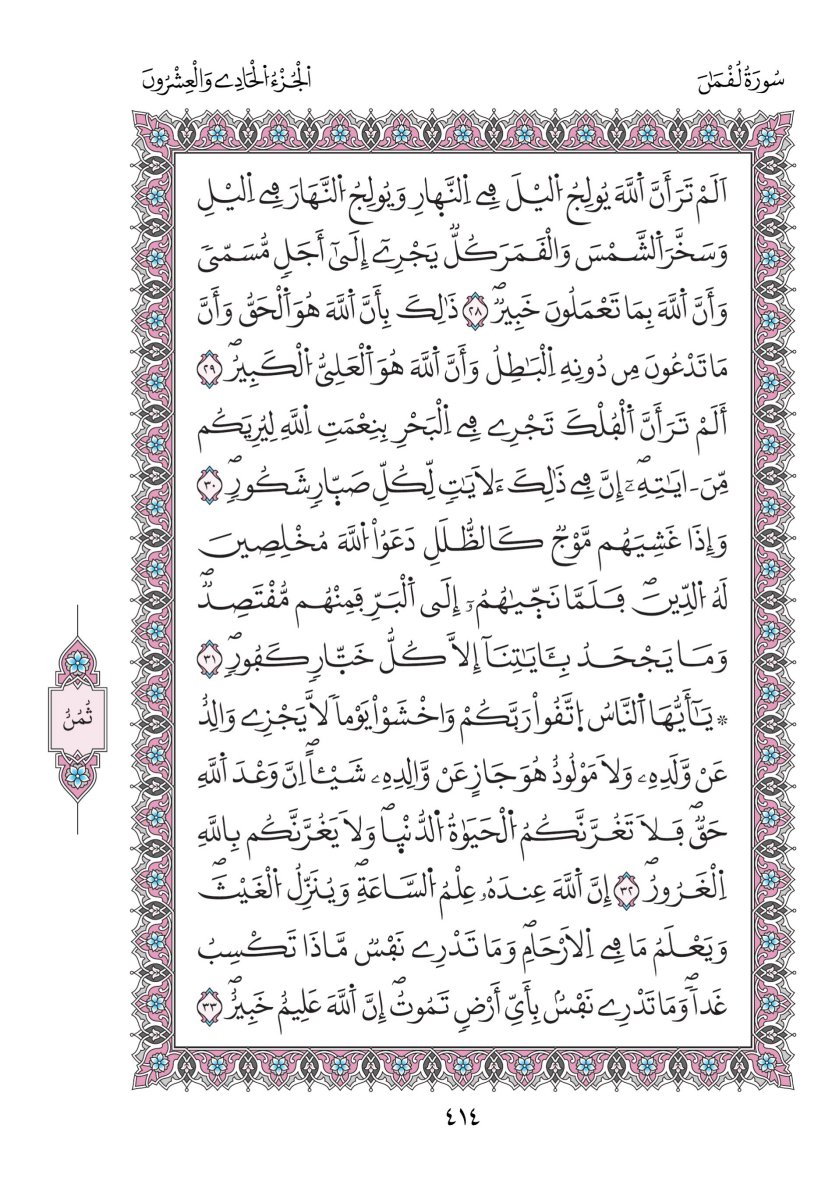 سُورَةُ لُقْمَٰنَ
اَ۬لْجُزْءُ اُ۬لْحَادِے وَالْعِشْرُونَ
اَلَمْ تَرَ أَنَّ اَ۬للَّهَ يُولِجُ اُ۬ليْلَ فِے اِ۬لنَّه۪ارِ وَيُولِجُ اُ۬لنَّهَارَ فِے اِ۬ليْلِ
وَسَخَّرَ اَ۬لشَّمْسَ وَالْقَمَرَ كُلّٞ يَجْرِےٓ إِلَىٰٓ أَجَلٖ مُّسَمّىٗ
وَأَنَّ اَ۬للَّهَ بِمَا تَعْمَلُونَ خَبِيرٞۖ ٢٨ ذَٰلِكَ بِأَنَّ اَ۬للَّهَ هُوَ اَ۬لْحَقُّ وَأَنَّ
مَا تَدْعُونَ مِن دُونِهِ اِ۬لْبَٰطِلُ وَأَنَّ اَ۬للَّهَ هُوَ اَ۬لْعَلِىُّ اُ۬لْكَبِيرُۖ ٢٩
أَلَمْ تَرَ أَنَّ اَ۬لْفُلْكَ تَجْرِے فِے اِ۬لْبَحْرِ بِنِعْمَتِ اِ۬للَّهِ لِيُرِيَكُم
مِّنَ ـ ايَٰتِهِۦٓۖ إِنَّ فِے ذَٰلِكَ ءَلَايَٰتٖ لِّكُلِّ صَبّ۪ارٖ شَكُورٖۖ ٣٠
وَإِذَا غَشِيَهُم مَّوْجٞ كَالظُّلَلِ دَعَوُاْ اُ۬للَّهَ مُخْلِصِينَ
لَهُ اُ۬لدِّينَۖ فَلَمَّا نَجّ۪يٰهُمُۥٓ إِلَى اَ۬لْبَرِّ فَمِنْهُم مُّقْتَصِدٞۖ
وَمَا يَجْحَدُ بِـَٔايَٰتِنَآ إِلَّا كُلُّ خَتّ۪ارٖ كَفُورٖۖ ٣١
۞ يَٰٓأَيُّهَا اَ۬لنَّاسُ اُ۪تَّقُواْ رَبَّكُمْ وَاخْشَوْاْ يَوْماٗ لَّا يَجْزِے وَالِدٌ
عَنْ وَّلَدِهِۦ وَلَا مَوْلُودٌ هُوَ جَازٍ عَنْ وَّالِدِهِۦ شَيْـٔاًۖ اِنَّ وَعْدَ اَ۬للَّهِ
حَقّٞۖ فَلَا تَغُرَّنَّكُمُ اُ۬لْحَيَوٰةُ اُ۬لدُّنْي۪اۖ وَلَا يَغُرَّنَّكُم بِاللَّهِ
اِ۬لْغَرُورُۖ ٣٢ إِنَّ اَ۬للَّهَ عِندَهُۥ عِلْمُ اُ۬لسَّاعَةِۖ وَيُنَزِّلُ اُ۬لْغَيْثَۖ
وَيَعْلَمُ مَا فِے اِ۬لَارْحَامِۖ وَمَا تَدْرِے نَفْسٞ مَّاذَا تَكْسِبُ
غَداٗۖ وَمَا تَدْرِے نَفْسُۢ بِأَيِّ أَرْضٖ تَمُوتُۖ إِنَّ اَ۬للَّهَ عَلِيمٌ خَبِيرٌۖ ٣٣
ثُمُنٌ
٤١٤